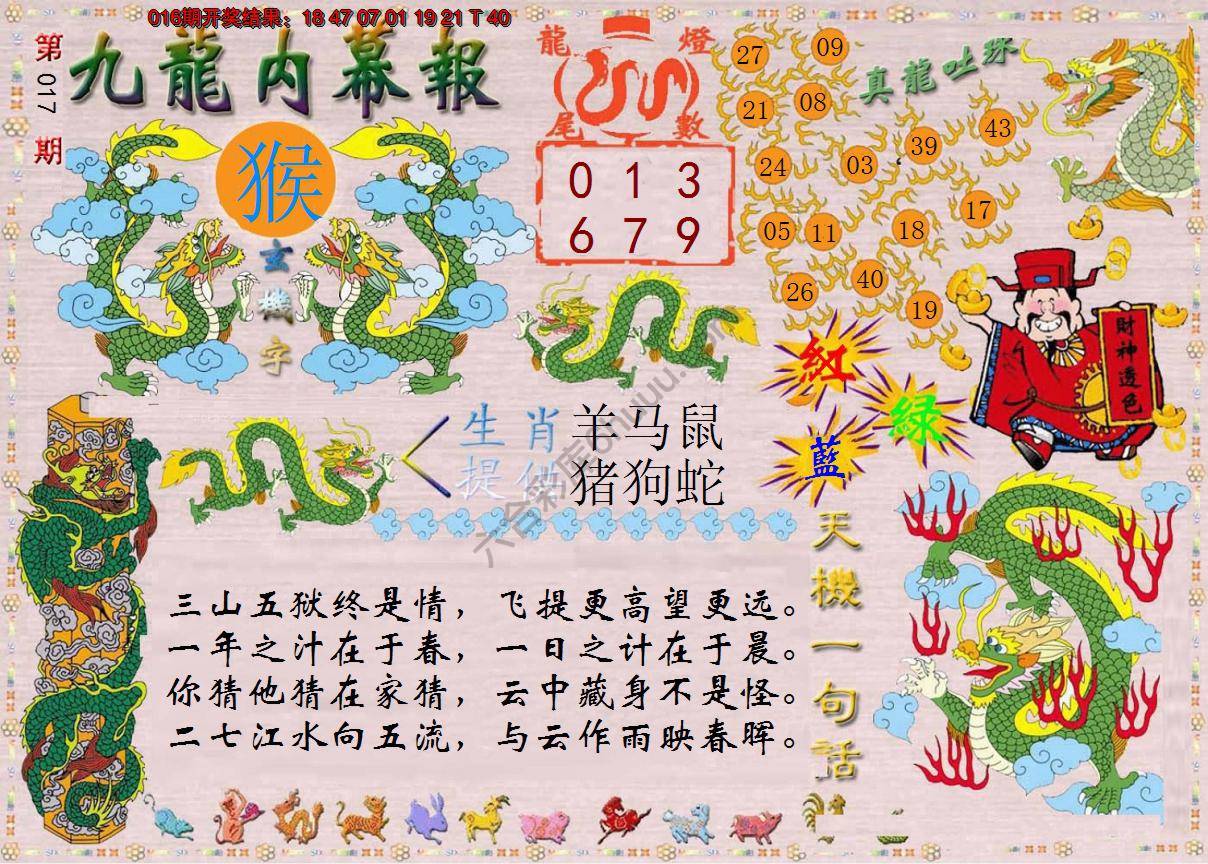 016期开奖结果：18 47 07 01 19 21 T 40
第017期
九龍内幕報
猴
玄機字
龍燈
尾數
0 1 3
6 7 9
真龍吐珠
27 09
21 08
24 03 39 43
05 11 18 17
26 40 19
財神透色
紅
綠
藍
生肖 羊马鼠
提供 猪狗蛇
三山五狱终是情，飞提更高望更远。
一年之汁在于春，一日之计在于晨。
你猜他猜在家猜，云中藏身不是怪。
二七江水向五流，与云作雨映春晖。
天機一句話